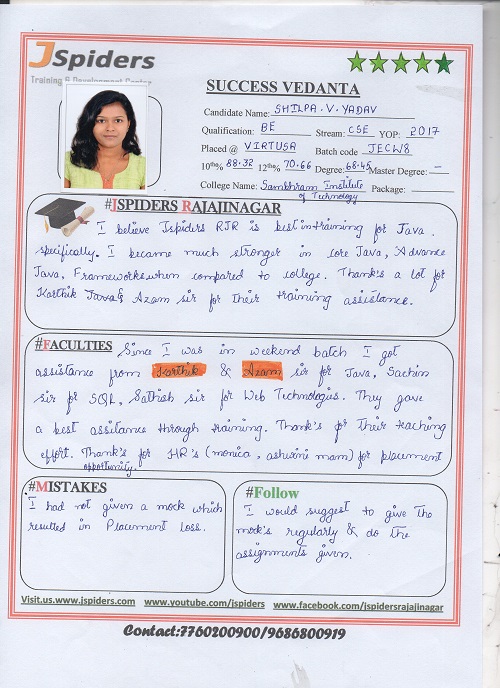 JSpiders
Training & Development Center
SUCCESS VEDANTA
Candidate Name: SHILPA.V.YADAV
Qualification: BE Stream: CSE YOP: 2017
Placed @ VIRTUSA Batch code JECW8
10th% 88.32 12th% 70.66 Degree: 68.45 Master Degree: —
College Name: Sambhram Institute of Technology Package:
#JSPIDERS RAJAJINAGAR
I believe Jspiders RJR is best in training for Java
specifically. I became much stronger in core Java, Advance
Java, Frameworks when compared to college. Thank's a lot for
Karthik Java & Azam sir for their training assistance.
#FACULTIES Since I was in weekend batch I got
assistance from Karthik & Azam sir for Java, Sachin
sir for SQL, Sathish sir for Web Technologies. They gave
a best assitance through training. Thank's for their teaching
effort. Thank's for HR's (monica, ashwini mam) for placement
opportunity.
#MISTAKES
I had not given a mock which
resulted in Placement Loss.
#Follow
I would suggest to give the
mock's regularly & do the
assignments given.
Visit.us.www.jspiders.com www.youtube.com/jspiders www.facebook.com/jspidersrajajinagar
Contact:7760200900/9686800919